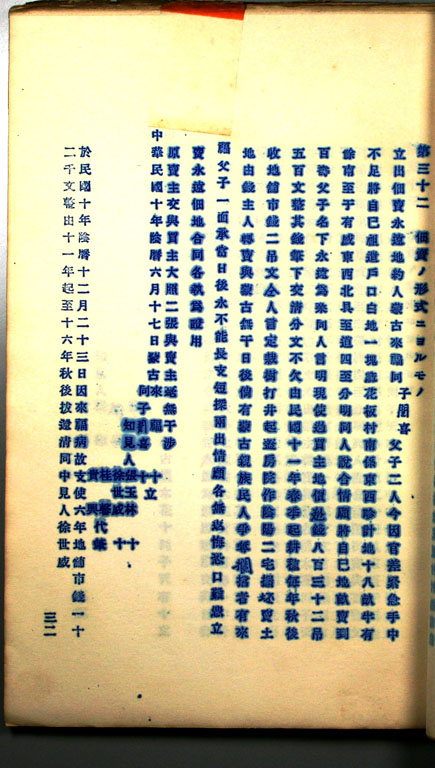 第三十二 佃賣ノ形式ニヨルモノ
立出佃賣永遠地約人蒙古來福同子朋喜父子二人今因官差緊急手中
不足將自己祖遺戶口白地一塊 花板村南係東西 計地十八畝半有
餘南至于有威東西北具至道四至分明同人說合情願將自己地 賣到
百壽父子名下永遠為業同人言明現使過買主地價 錢八百三十二吊
五百文整其錢筆下交清分文不欠由民國十一年春季起耕種每年秋後
收地舖市錢二吊文仝人言定栽樹打井起蓋房院作陰陽二宅 賣土
地由錢主人轉賣與蒙古無干日後倘有蒙古親族民人爭奪 者有來
福父子一面承當日後永不能長支短 兩出情願各無 悔恐口難憑立
賣永遠佃地合同各執為證用
原賣主交與買主大照二張與賣主毫無干涉
中華民國十年陰曆六月十七日蒙古來福 十立
同子朋喜 十
知見人張玉林 十
徐世威 十
桂馨
賀興 代筆
於民國十年陰曆十二月二十三日因來福病故支使六年地舖市錢一十
二千文整由十一年起至十六年秋後撥還清同中見人徐世威
三二一